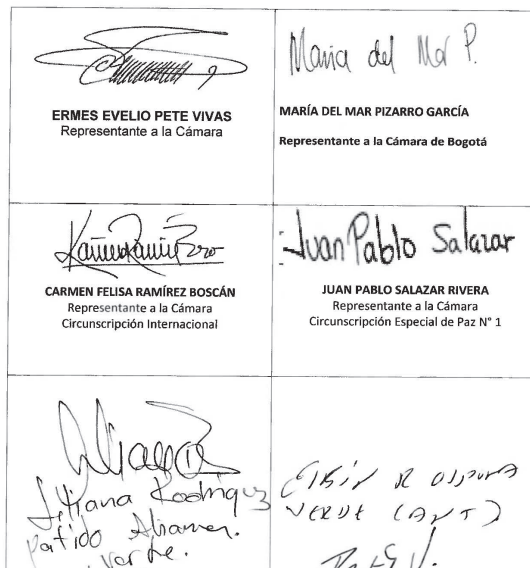 Maria del Mar P.
ERMES EVELIO PETE VIVAS
Representante a la Cámara
MARÍA DEL MAR PIZARRO GARCÍA
Representante a la Cámara de Bogotá
Juan Pablo Salazar
CARMEN FELISA RAMÍREZ BOSCÁN
Representante a la Cámara
Circunscripción Internacional
JUAN PABLO SALAZAR RIVERA
Representante a la Cámara
Circunscripción Especial de Paz N° 1
Liliana Rodriguez
Partido Alianza
Verde.
VERDE (ANT)